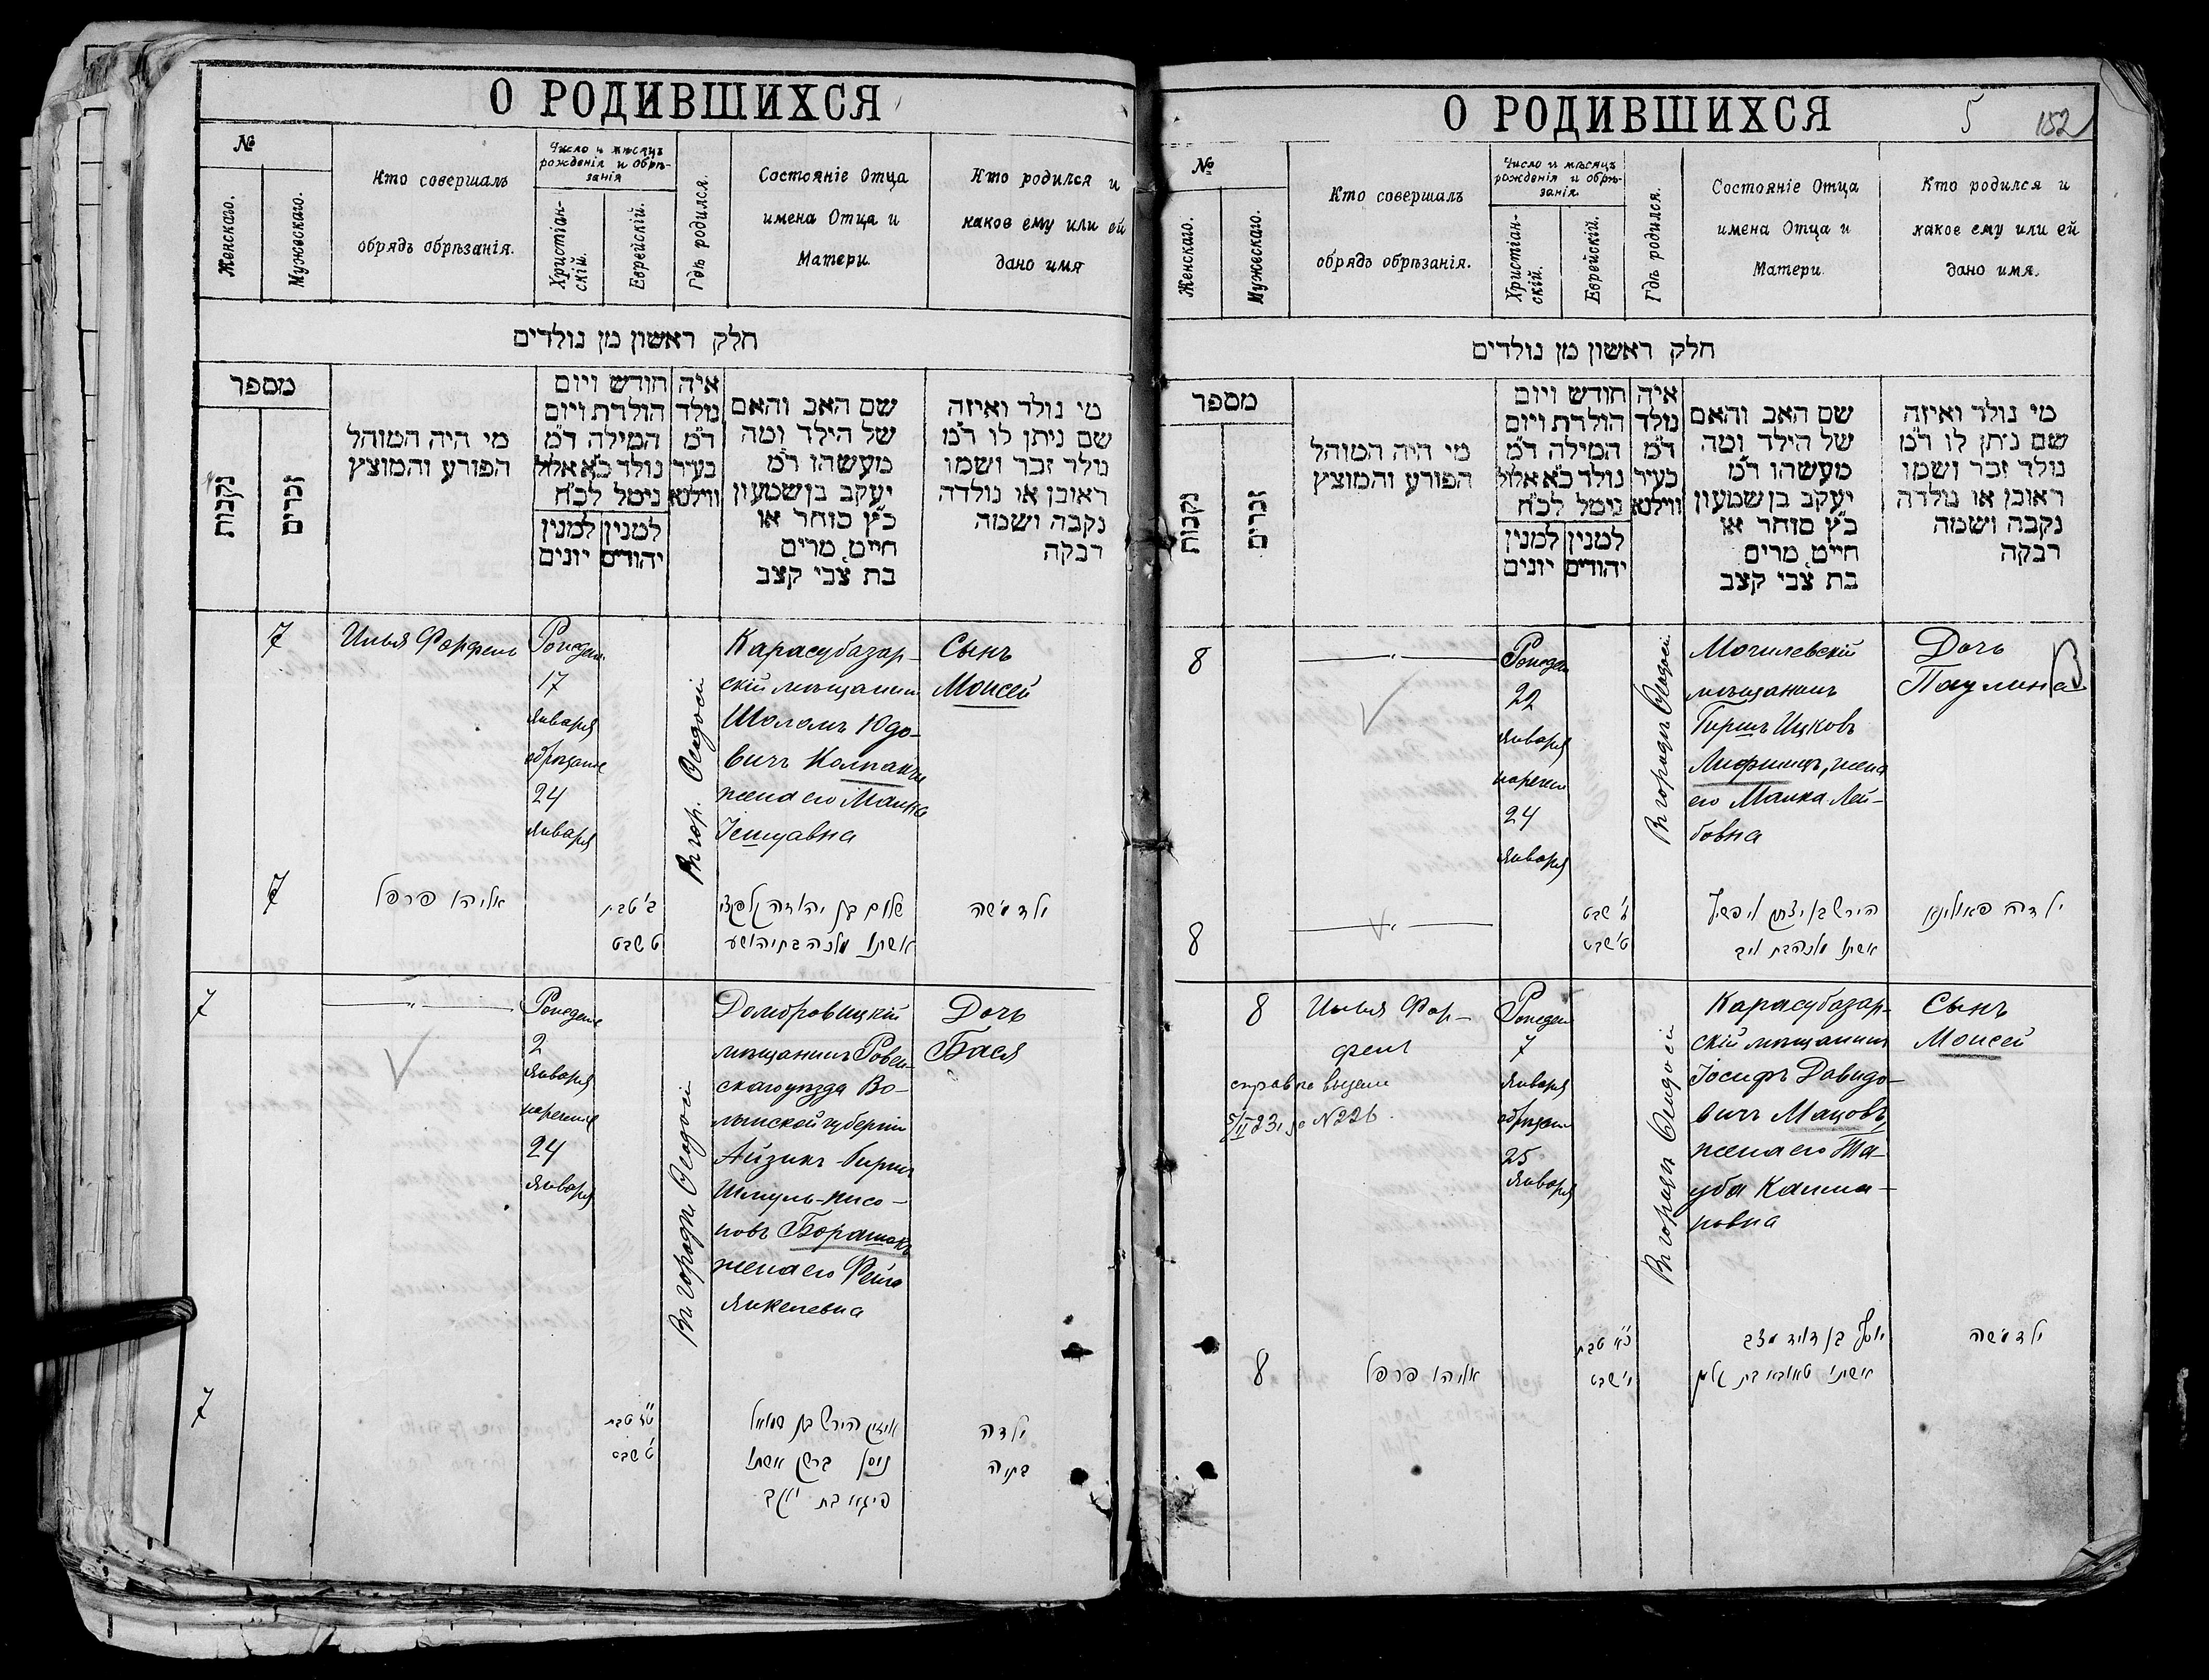 О РОДИВШИХСЯ
№
Женскаго.
Мужескаго.
Кто совершалъ
обрядъ обрѣзанія.
Число и мѣсяцъ
рожденія и обрѣ-
занія
Христіан-
скій.
Еврейскій.
Гдѣ родился.
Состояніе Отца
имена Отца и
Матери.
Кто родился и
какое ему или ей
дано имя
חלק ראשון מן נולדים
מספר
נקבות
זכרים
מי היה המוהל
הפורע והמוצץ
חודש ויום
הולדת ויום
המילה ד״מ
נולד כ״א אלול
נימל לכ״ח
למנין
יהודים
למנין
יונים
איה
נולד
ד״מ
בעיר
ווילנא
שם האב והאם
של הילד ומה
מעשהו ד״מ
יעקב בן שמעון
כ״ץ סוחר או
חייט, מרים
בת צבי קצב
מי נולד ואיזה
שם ניתן לו ד״מ
נולד זכר ושמו
ראובן או נולדה
נקבה ושמה
רבקה
7
Илья Фарфель
17
января
обрѣзаніе
24
января
Въ гор. Ѳеодосіи
Карасубазар-
скій мѣщанинъ
Шоломъ Юдо-
вичъ
жена его Малка
Іешуавна
Сынъ
Моисей
7
אליהו פרפל
ב׳ טבת
ט שבט
שלום בן יהודה
אשתו מלכה בת יהושע
ילד משה
7
2
января
нареченіе
24
января
Въ городѣ Ѳеодосіи
Домбровицкій
мѣщанинъ Ровен-
скаго уѣзда Во-
лынской губерніи
Айзикъ-Гиршъ
Шмуль-Нисо-
новъ Борашокъ
жена его Фейга
Янкелевна
Дочь
Бася
7
טבת
ט׳ שבט
אייזיק הירש בן שמואל
ניסן אשתו
פיגא בת יעקב
ילדה
בתיה
О РОДИВШИХСЯ
5
152
№
Женскаго.
Мужескаго.
Кто совершалъ
обрядъ обрѣзанія.
Число и мѣсяцъ
рожденія и обрѣ-
занія
Христіан-
скій.
Еврейскій.
Гдѣ родился.
Состояніе Отца
имена Отца и
Матери.
Кто родился и
какое ему или ей
дано имя.
חלק ראשון מן נולדים
מספר
נקבות
זכרים
מי היה המוהל
הפורע והמוצץ
חודש ויום
הולדת ויום
המילה ד״מ
נולד כ״א אלול
נימל לכ״ח
למנין
יהודים
למנין
יונים
איה
נולד
ד״מ
בעיר
ווילנא
שם האב והאם
של הילד ומה
מעשהו ד״מ
יעקב בן שמעון
כ״ץ סוחר או
חייט, מרים
בת צבי קצב
מי נולד ואיזה
שם ניתן לו ד״מ
נולד זכר ושמו
ראובן או נולדה
נקבה ושמה
רבקה
8
22
января
24
января
Въ городѣ Ѳеодосіи
Могилевскій
мѣщанинъ
Гиршъ Ицковъ
Лифшицъ, жена
его Малка Лей-
бовна
Дочь
Паулина
8
ז׳ שבט
ט׳ שבט
הירש בן יצחק ליפשיץ
אשתו מלכה בת ליב
ילדה פאולינא
8
Илья Фар-
фель
справка выдана
5/II 23 г. за №226.
7
января
25
января
Въ городѣ Ѳеодосіи
Карасубазар-
скій мѣщанинъ
Іосифъ Давидо-
вичъ Мацовъ,
жена его Та-
уба Калма-
новна
Сынъ
Моисей
8
אליהו פרפל
טבת
י׳ שבט
יוסף בן דוד מצב
אשתו טאובא בת קלמן
ילד משה